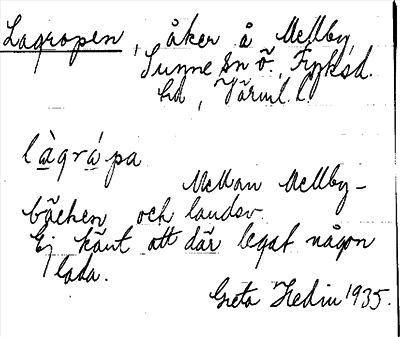 Lagropen, åker å Mellby,
Sunne sn ö., Fryksd.
hd, Värml. l.
làgrápa
Mellan Mellby-
bäcken och landsv.
Ej känt att där legat någon
lada.
Greta Hedin 1935.